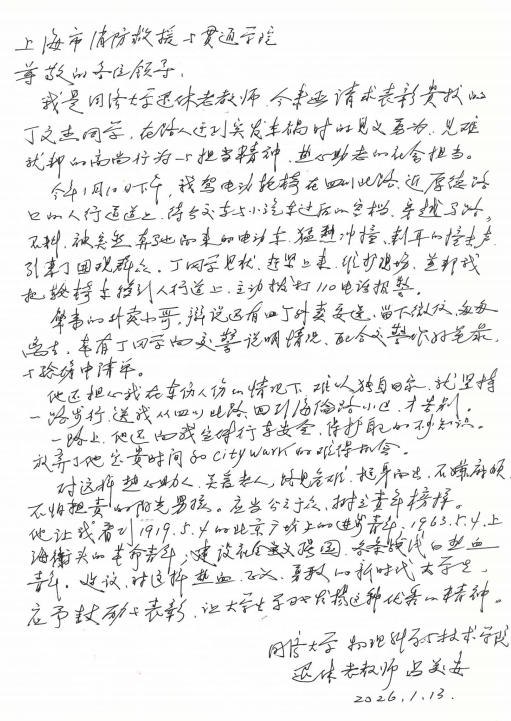 上海市消防救援与贯通学院
尊敬的各位领导,
我是同济大学退休老教师,今来函请求表彰贵校的
丁文杰同学,在路人遇到突发车祸时的见义勇为,见难
就帮的高尚行为与担当精神,热心助老的社会担当。
今年1月10日下午,我驾电动轮椅在四川北路近厚德路
口的人行通道上,待公交车与小汽车过后的空档,穿越马路,
不料,被突然奔驰而来的电动车猛烈冲撞,刺耳的撞击声
引来了围观群众。丁同学见状,赶紧上来,维护现场,并帮我
把轮椅车移到人行道上,主动拨打110电话报警。
肇事的外卖小哥,辩说还有四个外卖要送,留下微信,匆匆
离去,幸有丁同学向交警说明情况,配合交警做好笔录,
与验稿中陈単。
他还担心我在车伤人伤的情况下,难以独自回家,就坚持
一路步行,送我从四川北路回到海伦路小区,才告别。
一路上,他还向我宣传行车安全,保护取的不少知识。
放弃了他宝贵时间和city walk的难得机会。
对这种热心助人、关爱老人,的见危难,挺身而出,不嫌麻烦,
不怕担责的阳光男孩。应当公之于众,树立青年榜样。
他让我看到1919.5.4的北京广场上的进步青年,1963.5.4上
海街头的革命青年,建设社会主义强国,  时代的热血
青年。建议,对这种热血、正义、勇敢的新时代大学生,
应予鼓励与表彰,让大学生学习发扬这种优秀的精神。
同济大学 物理科学与技术学院
退休老教师 吕美安
2026.1.13.